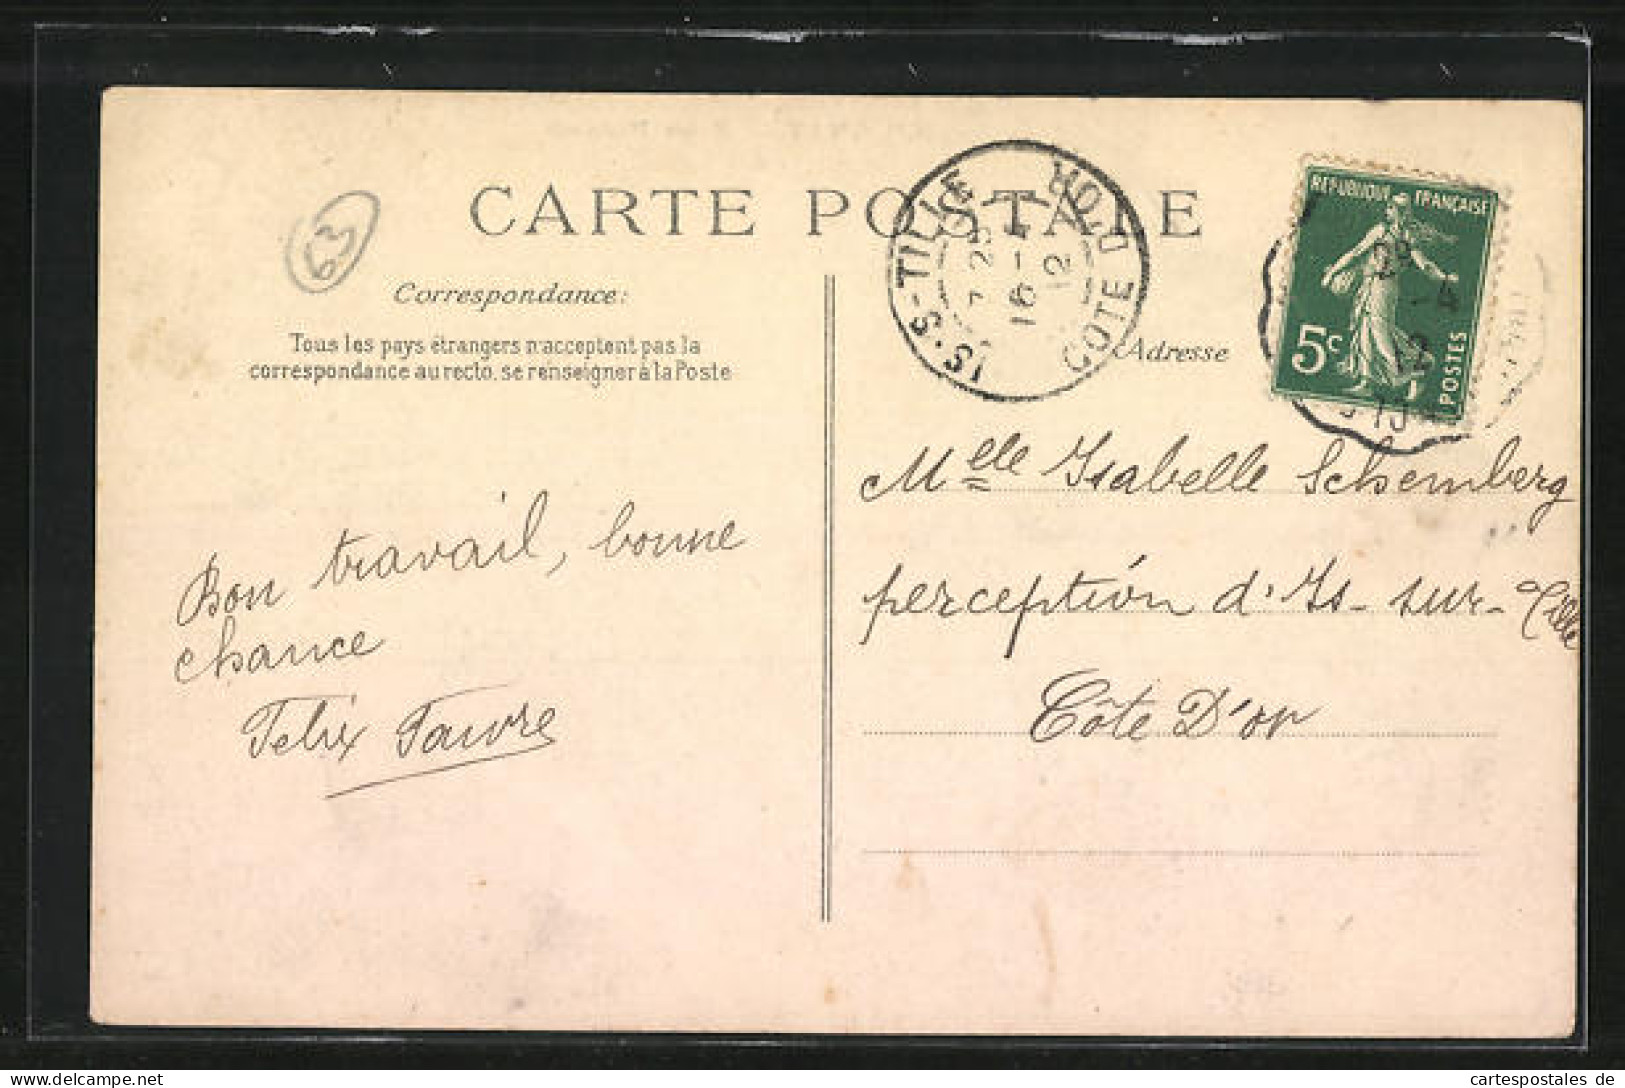 CARTE POSTALE
63
Correspondance:
Tous les pays étrangers n'acceptent pas la
correspondance au recto, se renseigner à la Poste
Bon travail, bonne
chance
Felix Favre
IS-S-TILLE
COTE D'OR
16-4
12
Adresse
REPUBLIQUE FRANÇAISE
5c
POSTES
29
-4
12
Melle Isabelle Schemberg
perception d'Is-sur-Tille
Côte D'or
Delcampe.net
cartespostales de